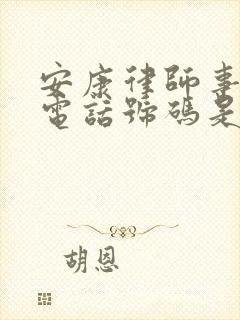 安康律師事
電話號碼是
胡恩